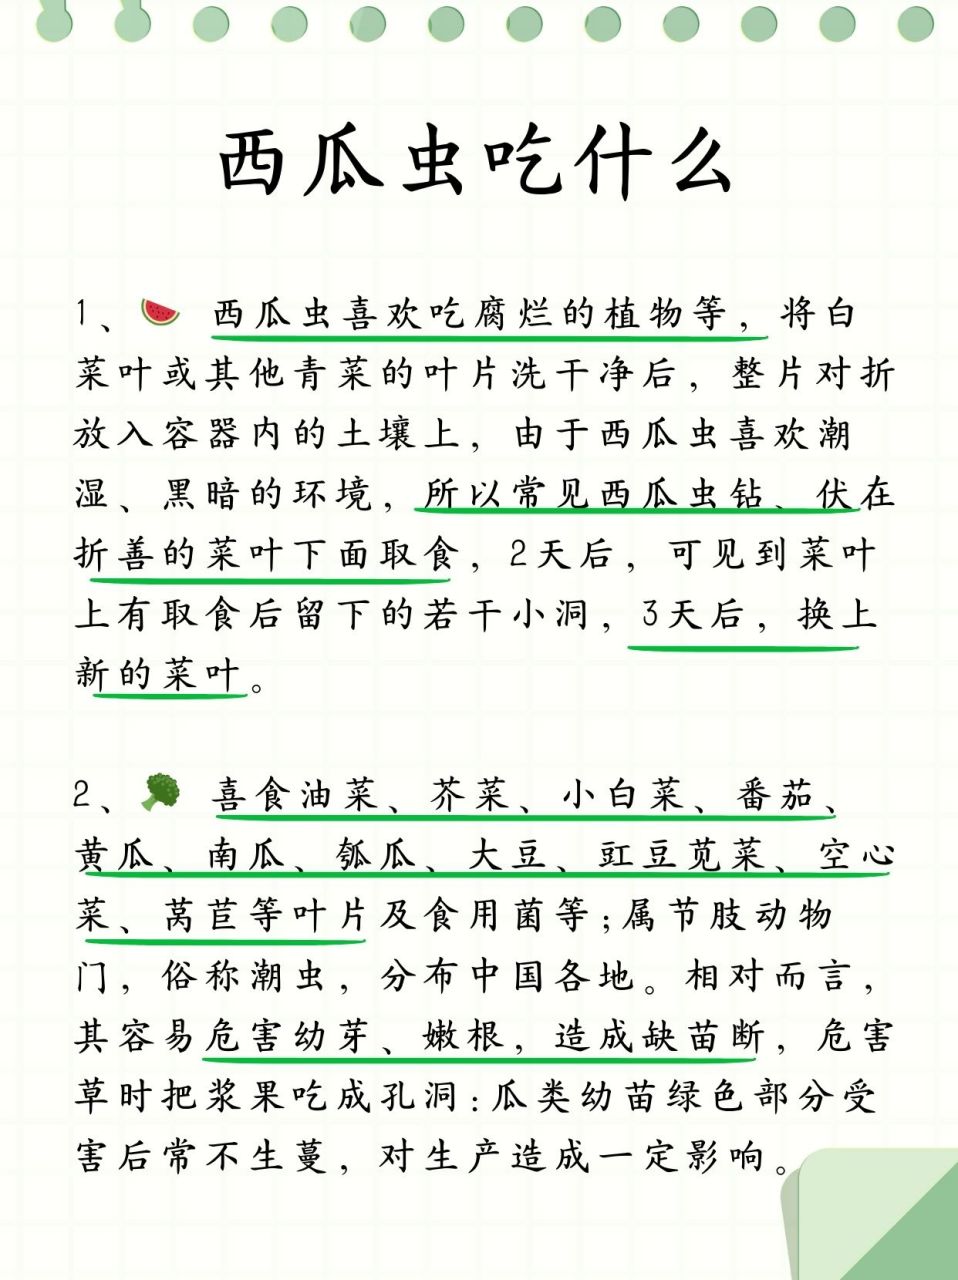 西瓜虫吃什么
1、🍉 西瓜虫喜欢吃腐烂的植物等，将白
菜叶或其他青菜的叶片洗干净后，整片对折
放入容器内的土壤上，由于西瓜虫喜欢潮
湿、黑暗的环境，所以常见西瓜虫钻、伏在
折善的菜叶下面取食，2天后，可见到菜叶
上有取食后留下的若干小洞，3天后，换上
新的菜叶。
2、🥦 喜食油菜、芥菜、小白菜、番茄、
黄瓜、南瓜、瓠瓜、大豆、豇豆苋菜、空心
菜、莴苣等叶片及食用菌等;属节肢动物
门，俗称潮虫，分布中国各地。相对而言，
其容易危害幼芽、嫩根，造成缺苗断，危害
草时把浆果吃成孔洞:瓜类幼苗绿色部分受
害后常不生蔓，对生产造成一定影响。